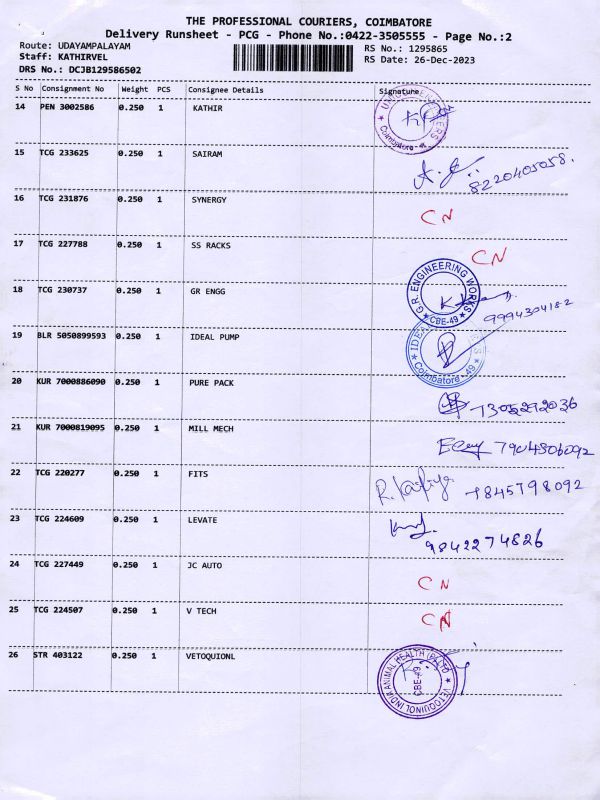 THE PROFESSIONAL COURIERS, COIMBATORE
Delivery Runsheet - PCG - Phone No.:0422-3505555 - Page No.:2
Route: UDAYAMPALAYAM
RS No.: 1295865
Staff: KATHIRVEL
RS Date: 26-Dec-2023
DRS No.: DCJB129586502
S No Consignment No Weight PCS Consignee Details Signature
14 PEN 3002586 0.250 1 KATHIR
Coimbatore
15 TCG 233625 0.250 1 SAIRAM
8220405058.
16 TCG 231876 0.250 1 SYNERGY CN
17 TCG 227788 0.250 1 SS RACKS CN
18 TCG 230737 0.250 1 GR ENGG
G.R. ENGINEERING WORKS
CBE-49
9994304182
19 BLR 5050899593 0.250 1 IDEAL PUMP
Coimbatore-49
20 KUR 7000886090 0.250 1 PURE PACK
7305292036
21 KUR 7000819095 0.250 1 MILL MECH
7904806092
22 TCG 220277 0.250 1 FITS
9845798092
23 TCG 224609 0.250 1 LEVATE
9842274826
24 TCG 227449 0.250 1 JC AUTO CN
25 TCG 224507 0.250 1 V TECH CN
26 STR 403122 0.250 1 VETOQUIONL
VETOQUINOL INDIA ANIMAL HEALTH (P) LTD
CBE-49